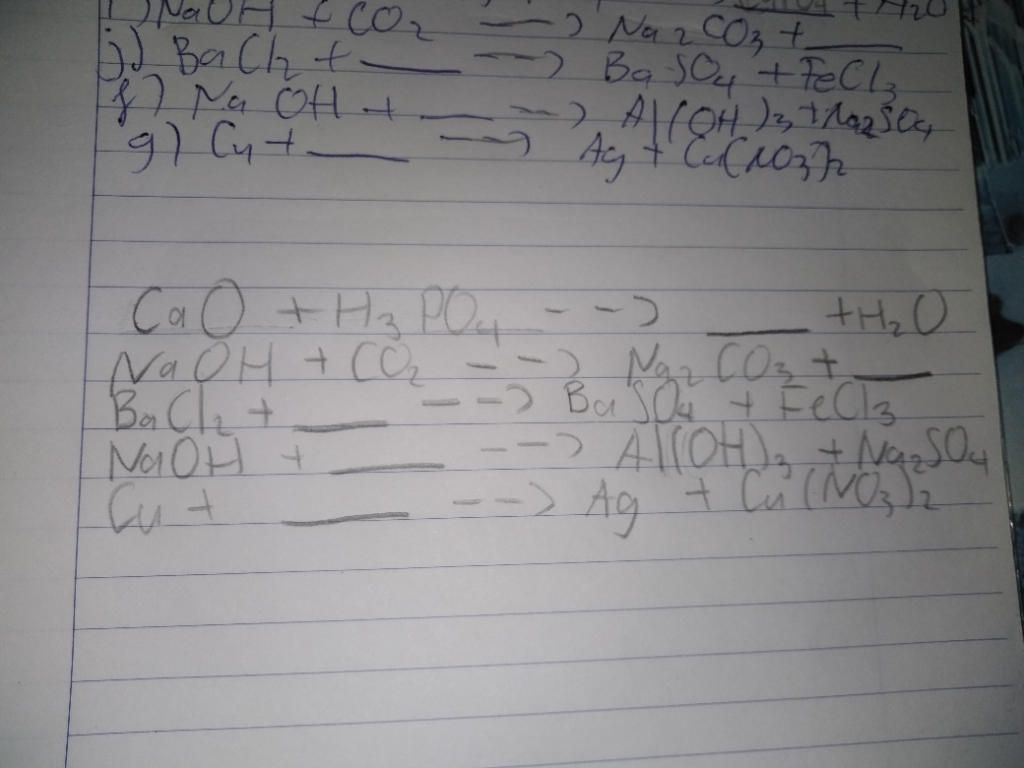 i) NaOH + CO2 --> Na2CO3 + ___
j) BaCl2 + ___ --> BaSO4 + FeCl3
f) NaOH + ___ --> Al(OH)3 + Na2SO4
g) Cu + ___ --> Ag + Cu(NO3)2
CaO + H3PO4 --> ___ + H2O
NaOH + CO2 --> Na2CO3 + ___
BaCl2 + ___ --> BaSO4 + FeCl3
NaOH + ___ --> Al(OH)3 + Na2SO4
Cu + ___ --> Ag + Cu(NO3)2